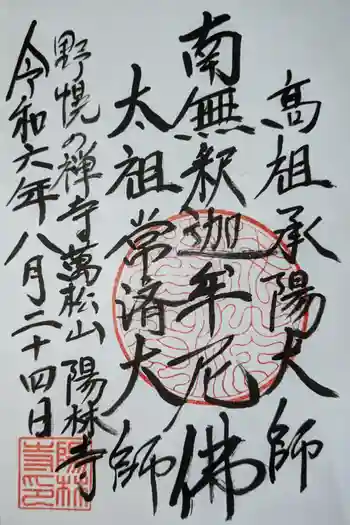 高祖承陽大師
南無釈迦牟尼佛
太祖常済大師
野幌の禅寺萬松山 陽林寺
令和六年八月二十四日
陽林寺印